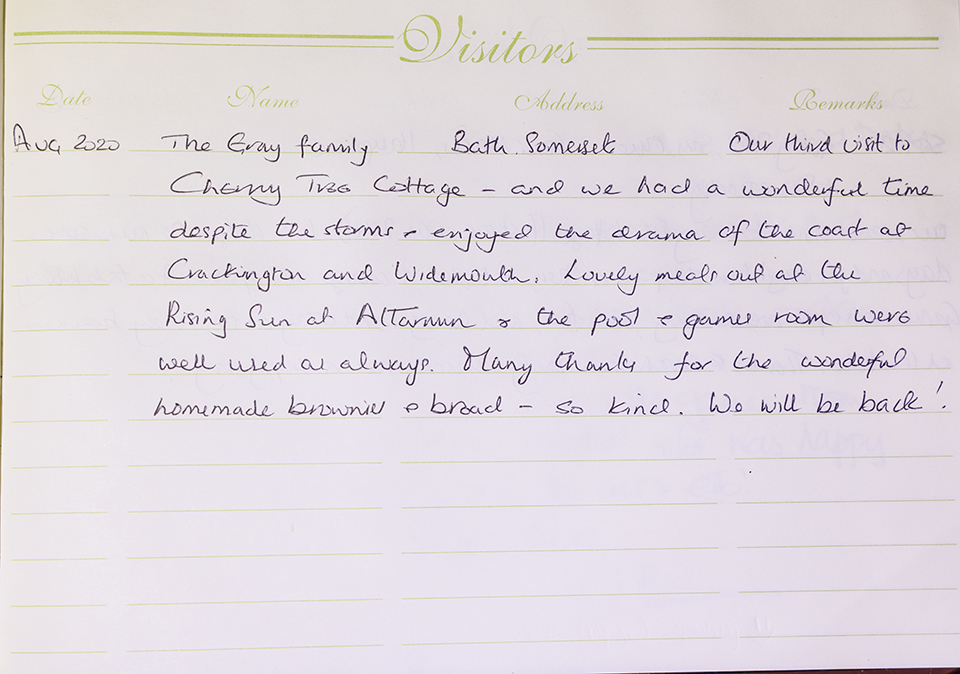 Visitors
Date Name Address Remarks
Aug 2020 The Gray family Bath. Somerset Our third visit to
Cherry Tree Cottage – and we had a wonderful time
despite the storms & enjoyed the drama of the coast at
Crackington and Widemouth. Lovely meals out at the
Rising Sun at Altarnun & the pool & games room were
well used as always. Many thanks for the wonderful
homemade brownies & bread – so kind. We will be back!